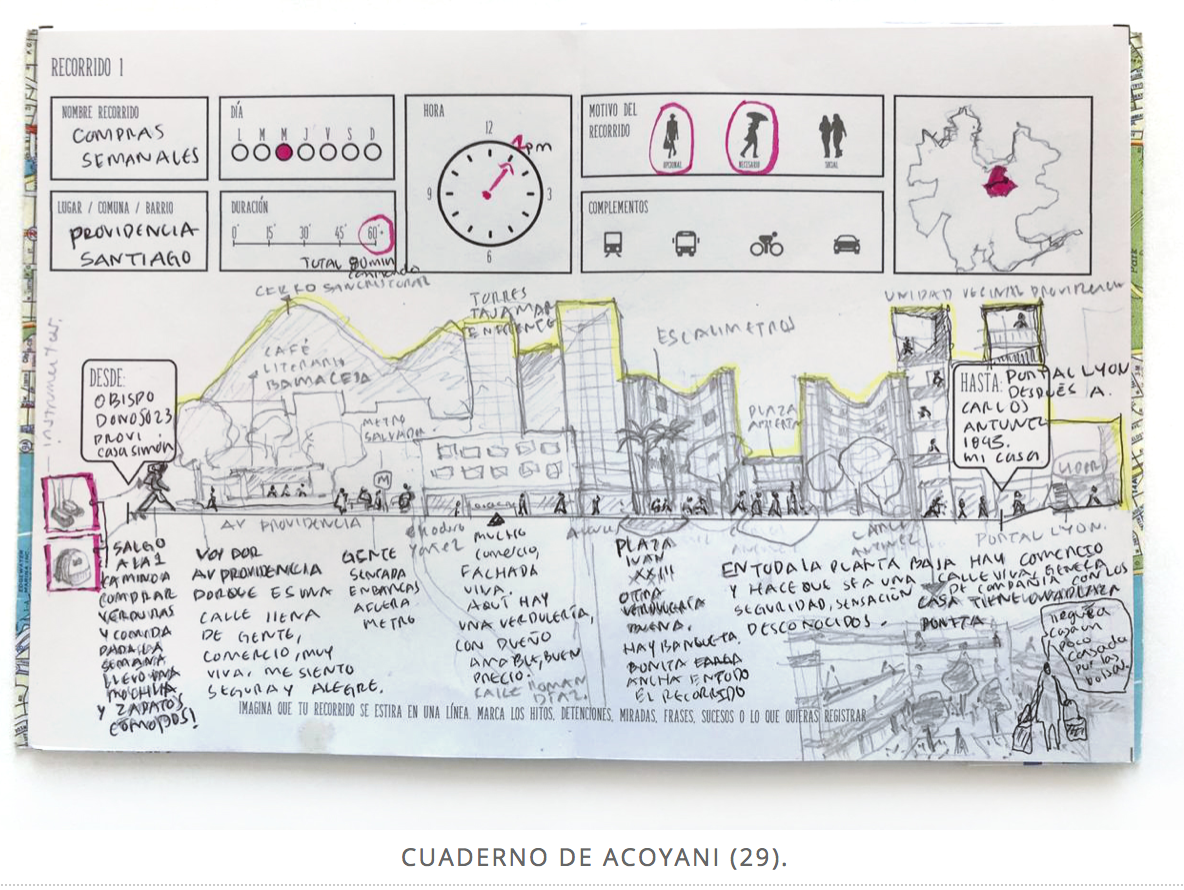 RECORRIDO 1
NOMBRE RECORRIDO
COMPRAS
SEMANALES
DÍA
L M M J V S D
HORA
12
1pm
3
6
9
MOTIVO DEL
RECORRIDO
OPCIONAL
NECESARIO
SOCIAL
LUGAR / COMUNA / BARRIO
PROVIDENCIA
SANTIAGO
DURACIÓN
0' 15' 30' 45' 60'+
TOTAL 80 min
caminando
COMPLEMENTOS
CERRO SAN CRISTOBAL
TORRES
TAJAMAR
ENFRENTE
ESCALIMETROS
UNIDAD VECINAL PROVIDENCIA
CAFÉ
LITERARIO
BALMACEDA
METRO
SALVADOR
M
PLAZA
DESDE:
OBISPO
DONOSO 23
PROVI
casa simón
HASTA: PORTAL LYON
DESPUÉS A.
CARLOS
ANTUNEZ
1843.
mi casa
AV PROVIDENCIA
PORTAL LYON.
SALGO
A LA 1
CAMINO A
COMPRAR
VERDURAS
Y COMIDA
PARA LA
SEMANA
LLEVO UNA
MOCHILA
Y ZAPATOS
CÓMODOS!
VOY POR
AV PROVIDENCIA
PORQUE ES UNA
CALLE LLENA
DE GENTE,
COMERCIO, MUY
VIVA. ME SIENTO
SEGURA Y ALEGRE.
GENTE
SENTADA
EN BANCAS
AFUERA
METRO
MUCHO
COMERCIO,
FACHADA
VIVA.
AQUÍ HAY
UNA VERDULERÍA,
CON DUEÑO
AMABLE, BUEN
PRECIO.
CALLE ROMAN
DÍAZ.
PLAZA
JUAN
XXIII
OTRA
VERDULERÍA
BUENA.
HAY BANQUETA
BONITA
ANCHA EN TODO
EL RECORRIDO
EN TODA LA PLANTA BAJA HAY COMERCIO
Y HACE QUE SEA UNA CALLE VIVA, GENERA
SEGURIDAD, SENSACIÓN DE COMPAÑIA CON LOS
DESCONOCIDOS.
CASA TIENE UNA PLAZA
BONITA
llegué a
casa un
poco
cansada
por las
bolsas.
IMAGINA QUE TU RECORRIDO SE ESTIRA EN UNA LÍNEA. MARCA LOS HITOS, DETENCIONES, MIRADAS, FRASES, SUCESOS O LO QUE QUIERAS REGISTRAR
CUADERNO DE ACOYANI (29).